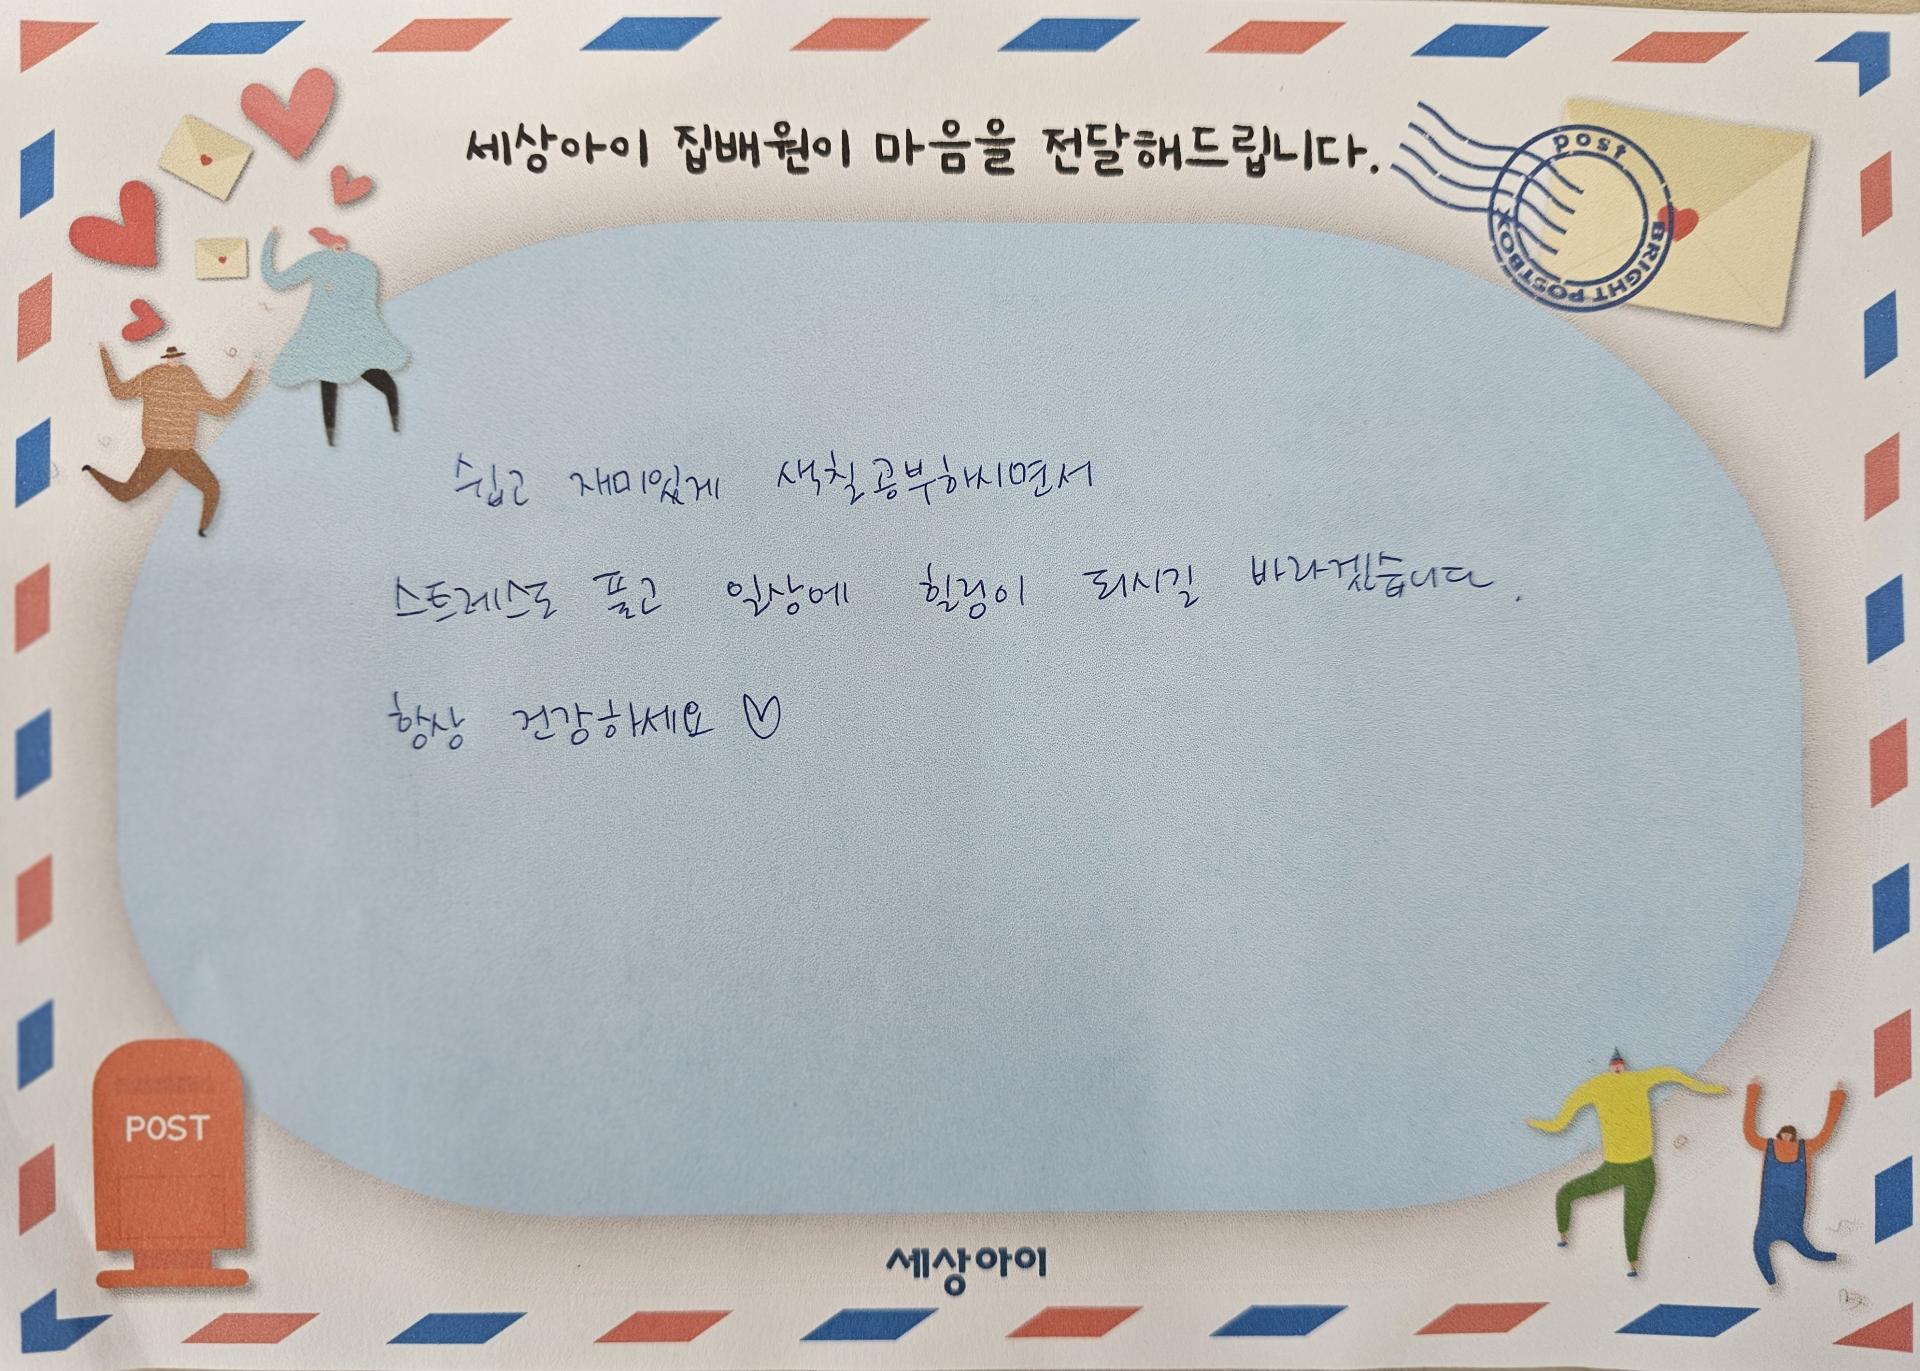 세상아이 집배원이 마음을 전달해드립니다.
post
BRIGHT POSTBOX
쉽고 재미있게 색칠공부하시면서
스트레스도 풀고 일상에 힐링이 되시길 바라겠습니다.
항상 건강하세요 ♡
POST
세상아이